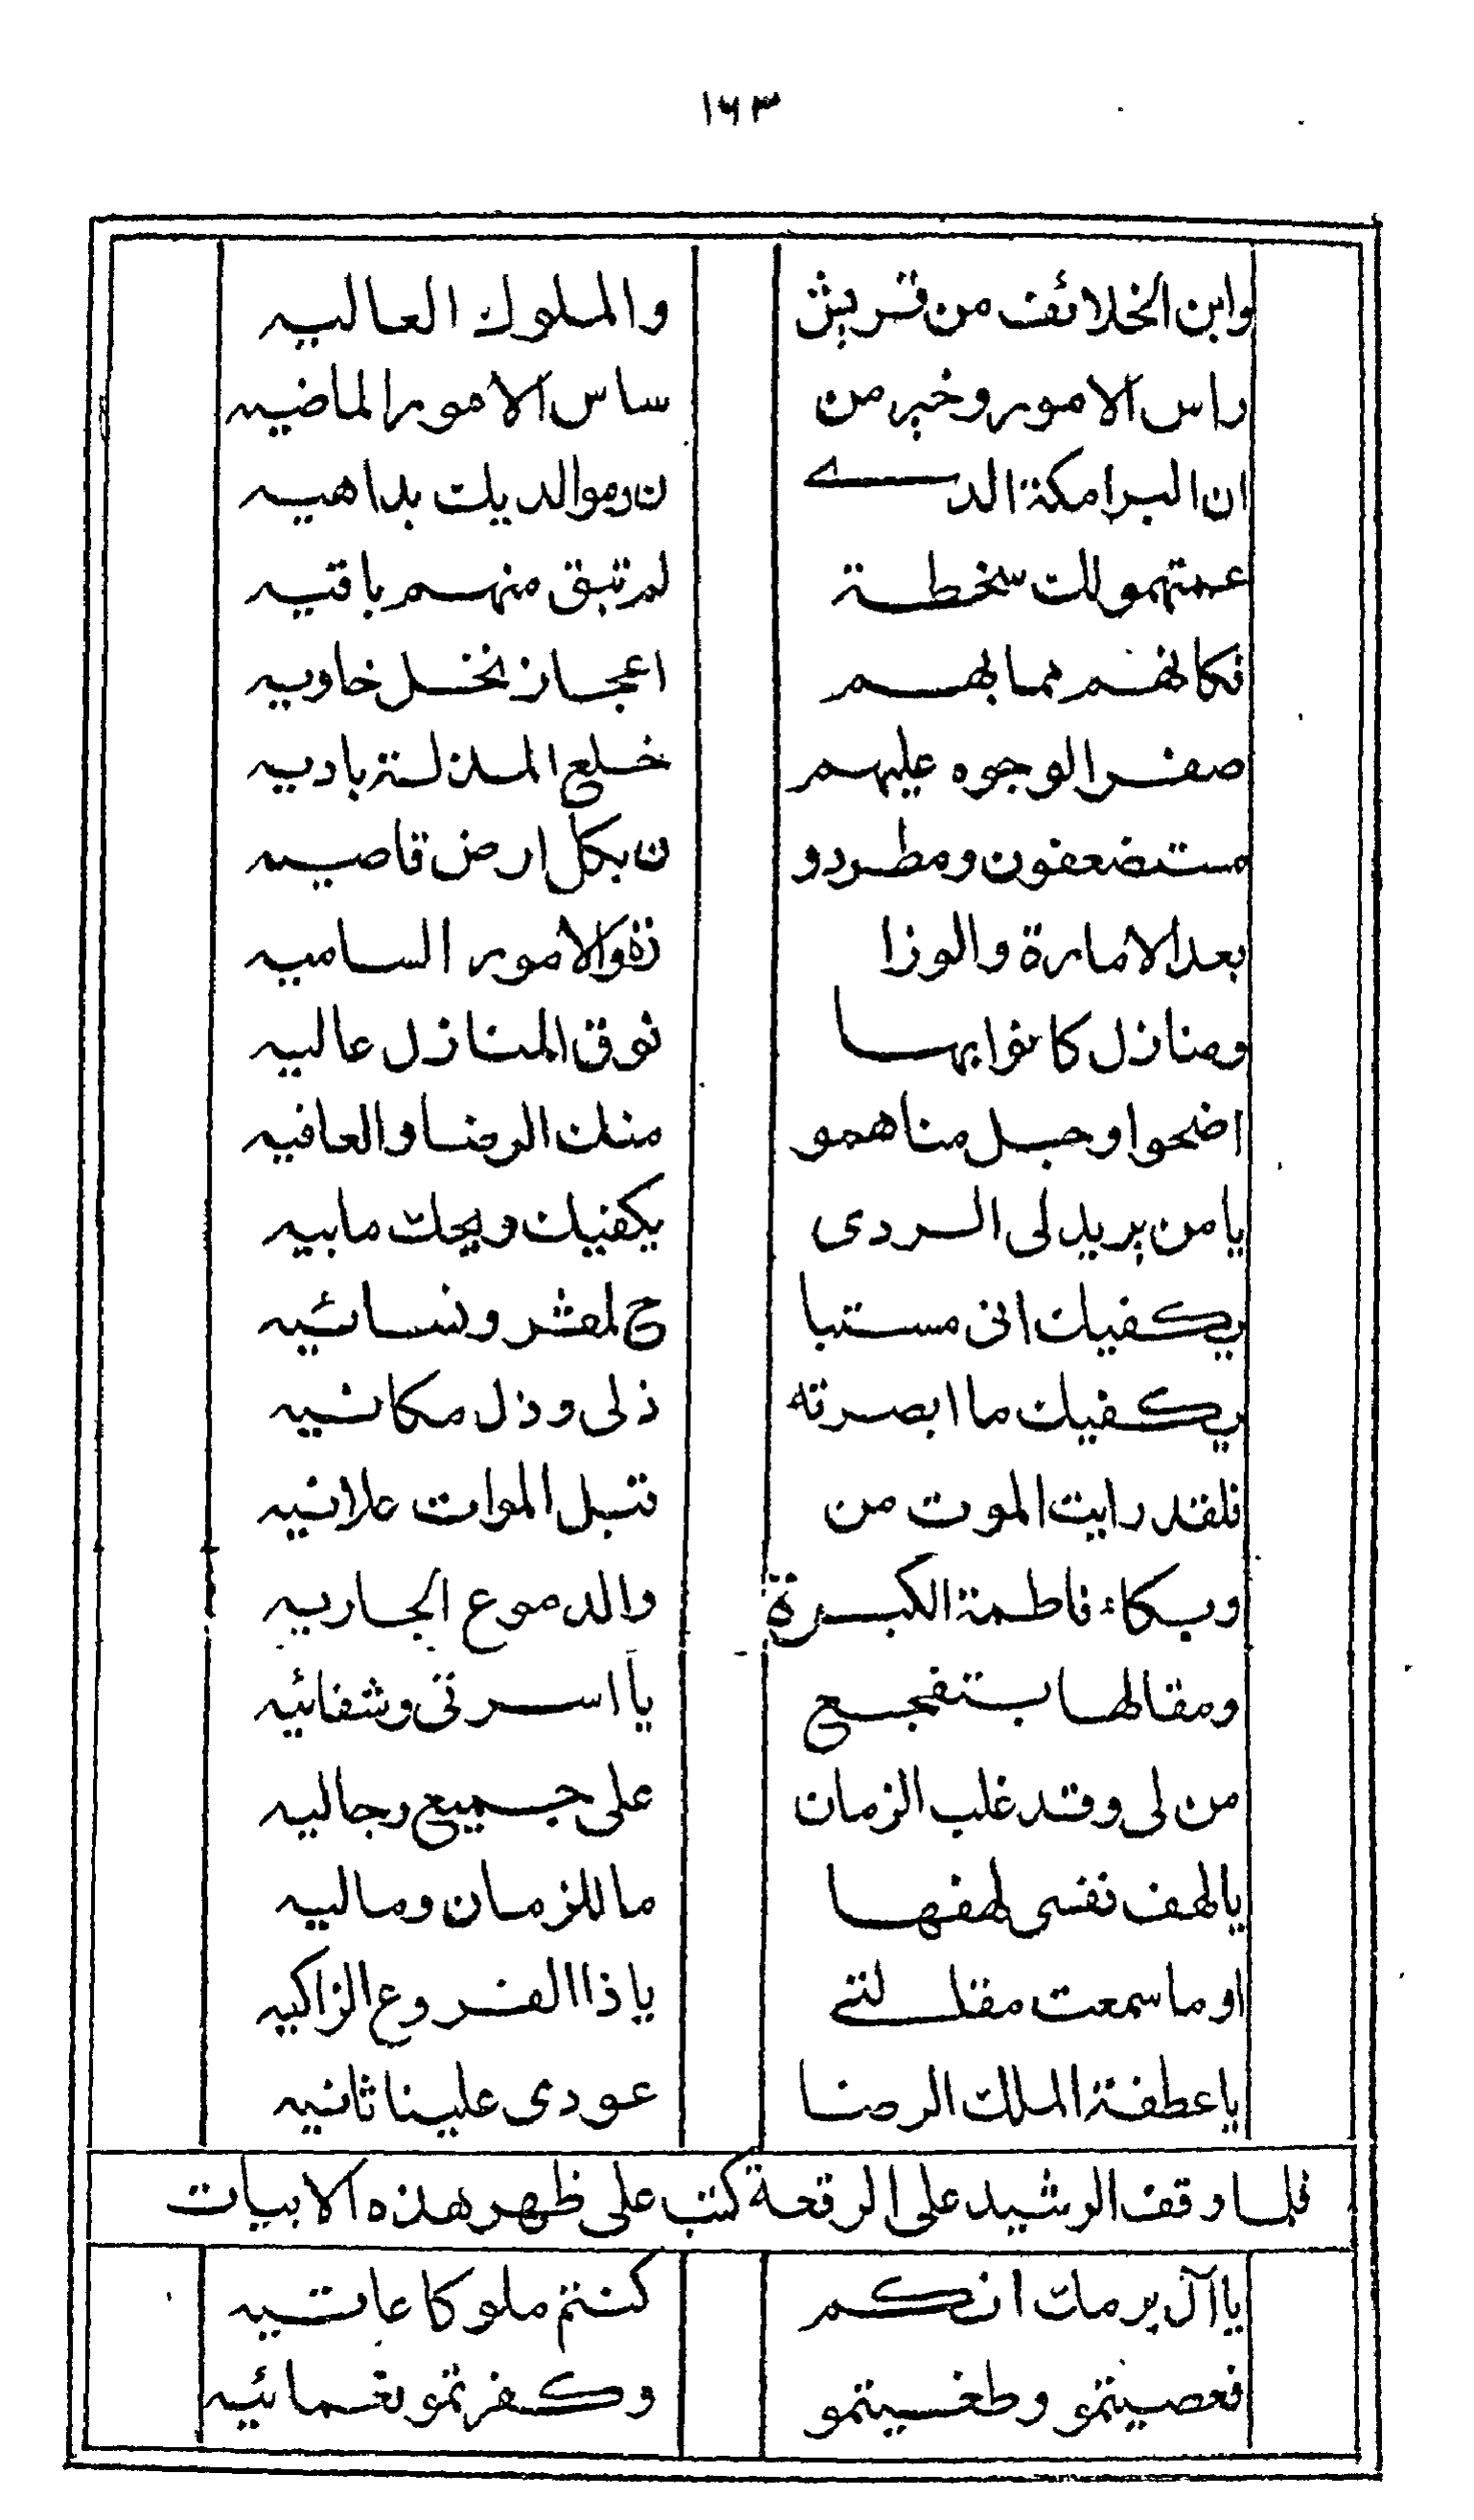 ١٦٣
وابن الخلائف من قريش والملوك العاليه
راس الامور وخير من ساس الامور الماضيه
ان البرامكة الذى ن رموا لديك بداهيه
عمتهمو لك سخطة لم تبق منهم باقيه
فكانهم مما بهم اعجاز نخل خاويه
صفر الوجوه عليهم خلع المذلة باديه
مستضعفون ومطردو ن بكل ارض قاصيه
بعد الامارة والوزا رة والامور الساميه
ومنازل كانوا بها فوق المنازل عاليه
اضحوا وحبل مناهمو منك الرضا والعافيه
يا من يريد لى الردى يكفيك ويحك ما بيه
يكفيك انى مستبا ح لمعشر ونسائيه
يكفيك ما ابصرته ذلى وذل مكانيه
فلقد رايت الموت من قبل الموات علانيه
وبكاء فاطمة الكبرة والدموع الجاريه
ومقالها بتفجع يا اسرتى وشفائيه
من لى وقد غلب الزمان على جميع رجاليه
يا لهف نفسى لهفها ما للزمان وماليه
او ما سمعت مقالتى يا ذا الفروع الزاكيه
يا عطفة الملك الرضا عودى علينا ثانيه
فلما وقف الرشيد على الرقعة كتب على ظهر هذه الابيات
يا آل برمك انكم كنتم ملوكا عاتيه
فعصيتمو وطغيتمو وكفرتمو نعمائيه